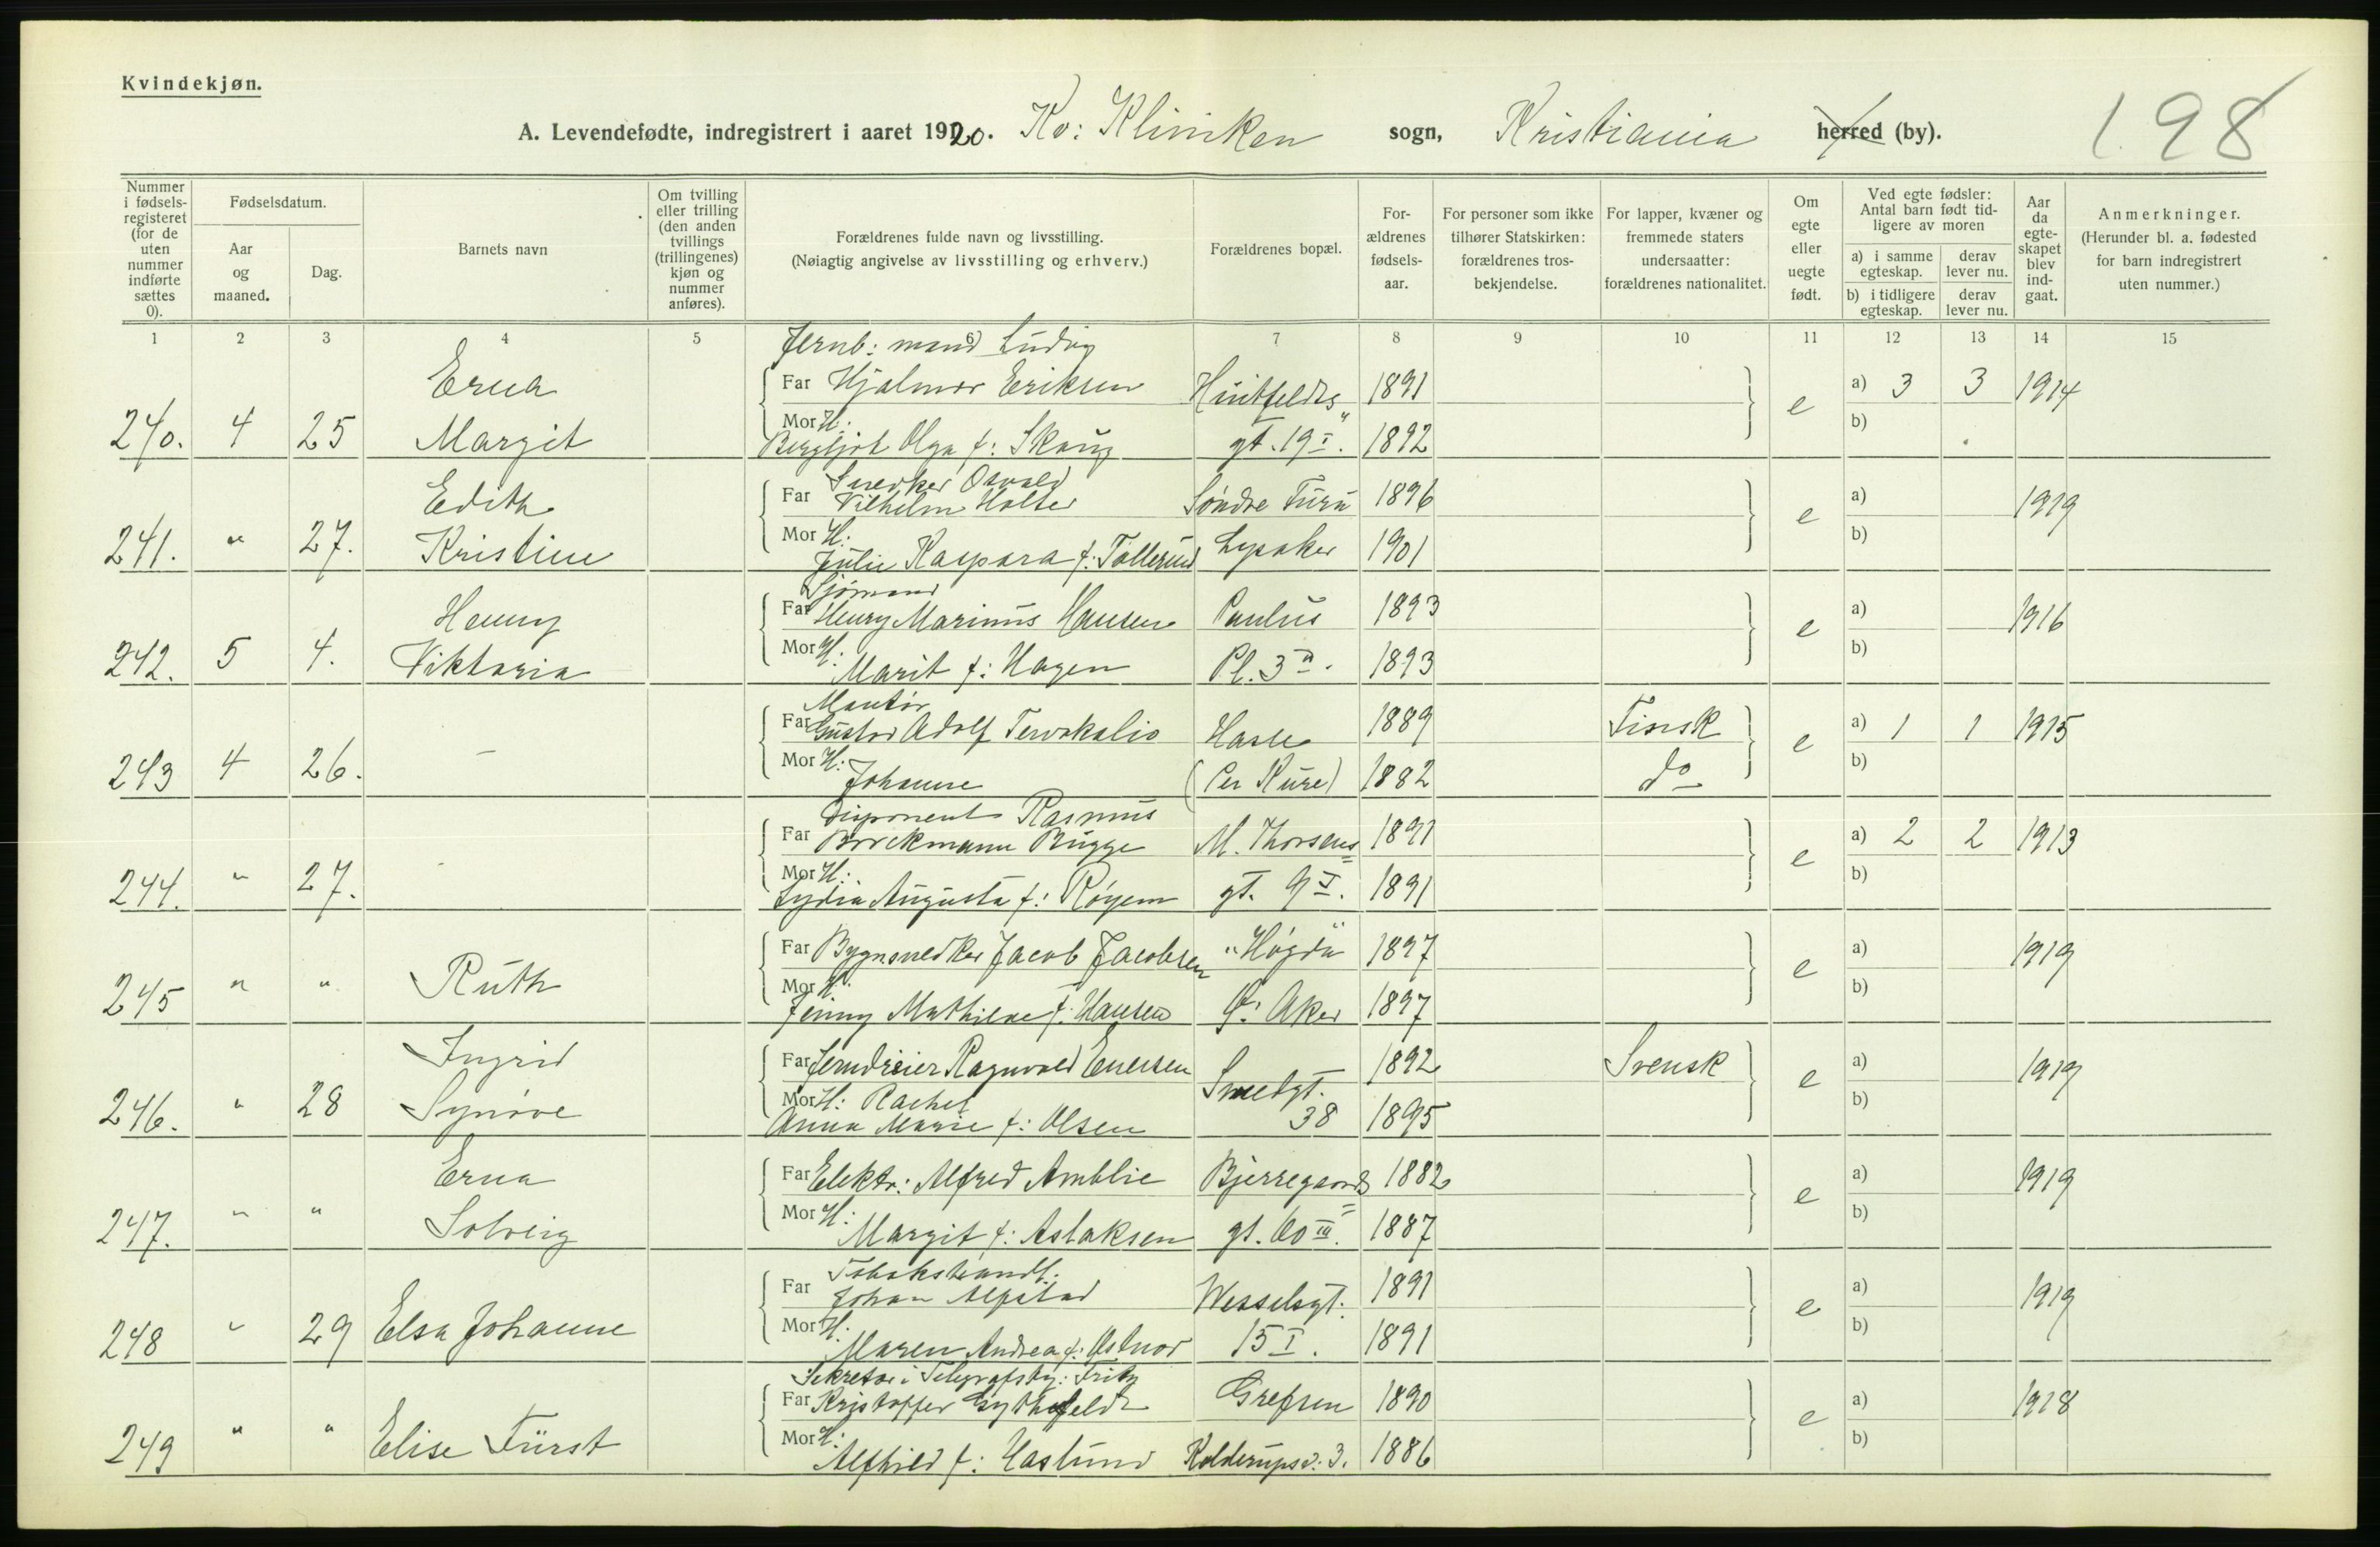 Kvindekjøn.
A. Levendefødte, indregistrert i aaret 1920. Kv: Kliniken sogn, Kristiania herred (by).
198
Nummer i fødselsregisteret (for de uten nummer indførte sættes 0).
Fødselsdatum.
Aar og maaned.
Dag.
Barnets navn
Om tvilling eller trilling (den anden tvillings (trillingenes) kjøn og nummer anføres).
Forældrenes fulde navn og livsstilling.
(Nøiagtig angivelse av livsstilling og erhverv.)
Forældrenes bopæl.
Forældrenes fødselsaar.
For personer som ikke tilhører Statskirken: forældrenes trosbekjendelse.
For lapper, kvæner og fremmede staters undersaatter: forældrenes nationalitet.
Om egte eller uegte født.
Ved egte fødsler: Antal barn født tidligere av moren
a) i samme egteskap. derav lever nu.
b) i tidligere egteskap. derav lever nu.
Aar da egteskapet blev indgaat.
Anmerkninger.
(Herunder bl. a. fødested for barn indregistrert uten nummer.)
1 2 3 4 5 6 7 8 9 10 11 12 13 14 15
Jernb: mand Ludvig
Erna Far Hjalmar Eriksen Huitfeldts 1891 e a) 3 3 1914
240. 4 25 Margit Mor H: Bergljot Olga f: Skaug gt. 19 I. 1892 b)
Snedker Osvald
Edith Far Vilhelm Holter Søndre Furu 1896 e a) 1919
241. " 27. Kristine Mor H: Julie Kaspara f: Tollerud Lysaker 1901 b)
Sjømand
Henny Far Henry Marinus Hansen Paulus 1893 e a) 1916
242. 5 4. Viktoria Mor H: Marit f: Hagen Pl. 3 1893 b)
Montør
Far Gustav Adolf Tervokalio Hasle 1889 Finsk e a) 1 1 1915
243 4 26. – Mor H: Johanne (Per Kure) 1882 do b)
Disponent Rasmus
Far Brockmann Bugge M. Thorsens 1891 e a) 2 2 1913
244. " 27. - Mor H: Lydia Augusta f: Røyem gt. 9 I. 1891 b)
Far Bygnsnedker Jacob Jacobsen "Høgda" 1897 e a) 1919
245 " " Ruth Mor H: Jenny Mathilde f: Hansen Ø. Aker 1897 b)
Ingrid Far Jerndreier Ragnvald Enersen Smedgt. 1892 Svensk e a) 1919
246. " 28 Synøve Mor H: Rachel Anna Marie f: Olsen 38 1895 b)
Erna Far Elektr: Alfred Amblie Bjerregaards 1882 e a) 1919
247. " " Solveig Mor H: Margit f: Aslaksen gt. 60 III. 1887 b)
Tobakshandl.
Far Johan Alfstad Wesselsgt. 1891 e a) 1919
248 " 29 Elsa Johanne Mor H: Maren Andrea f: Østnor 15 I. 1891 b)
Sekretær i Telegrafsty: Fritz
Far Kristoffer Gythfeldt Grefsen 1890 e a) 1918
249 " " Elise Fürst Mor H: Alfhild f: Haslund Kolderupsv. 3. 1886 b)